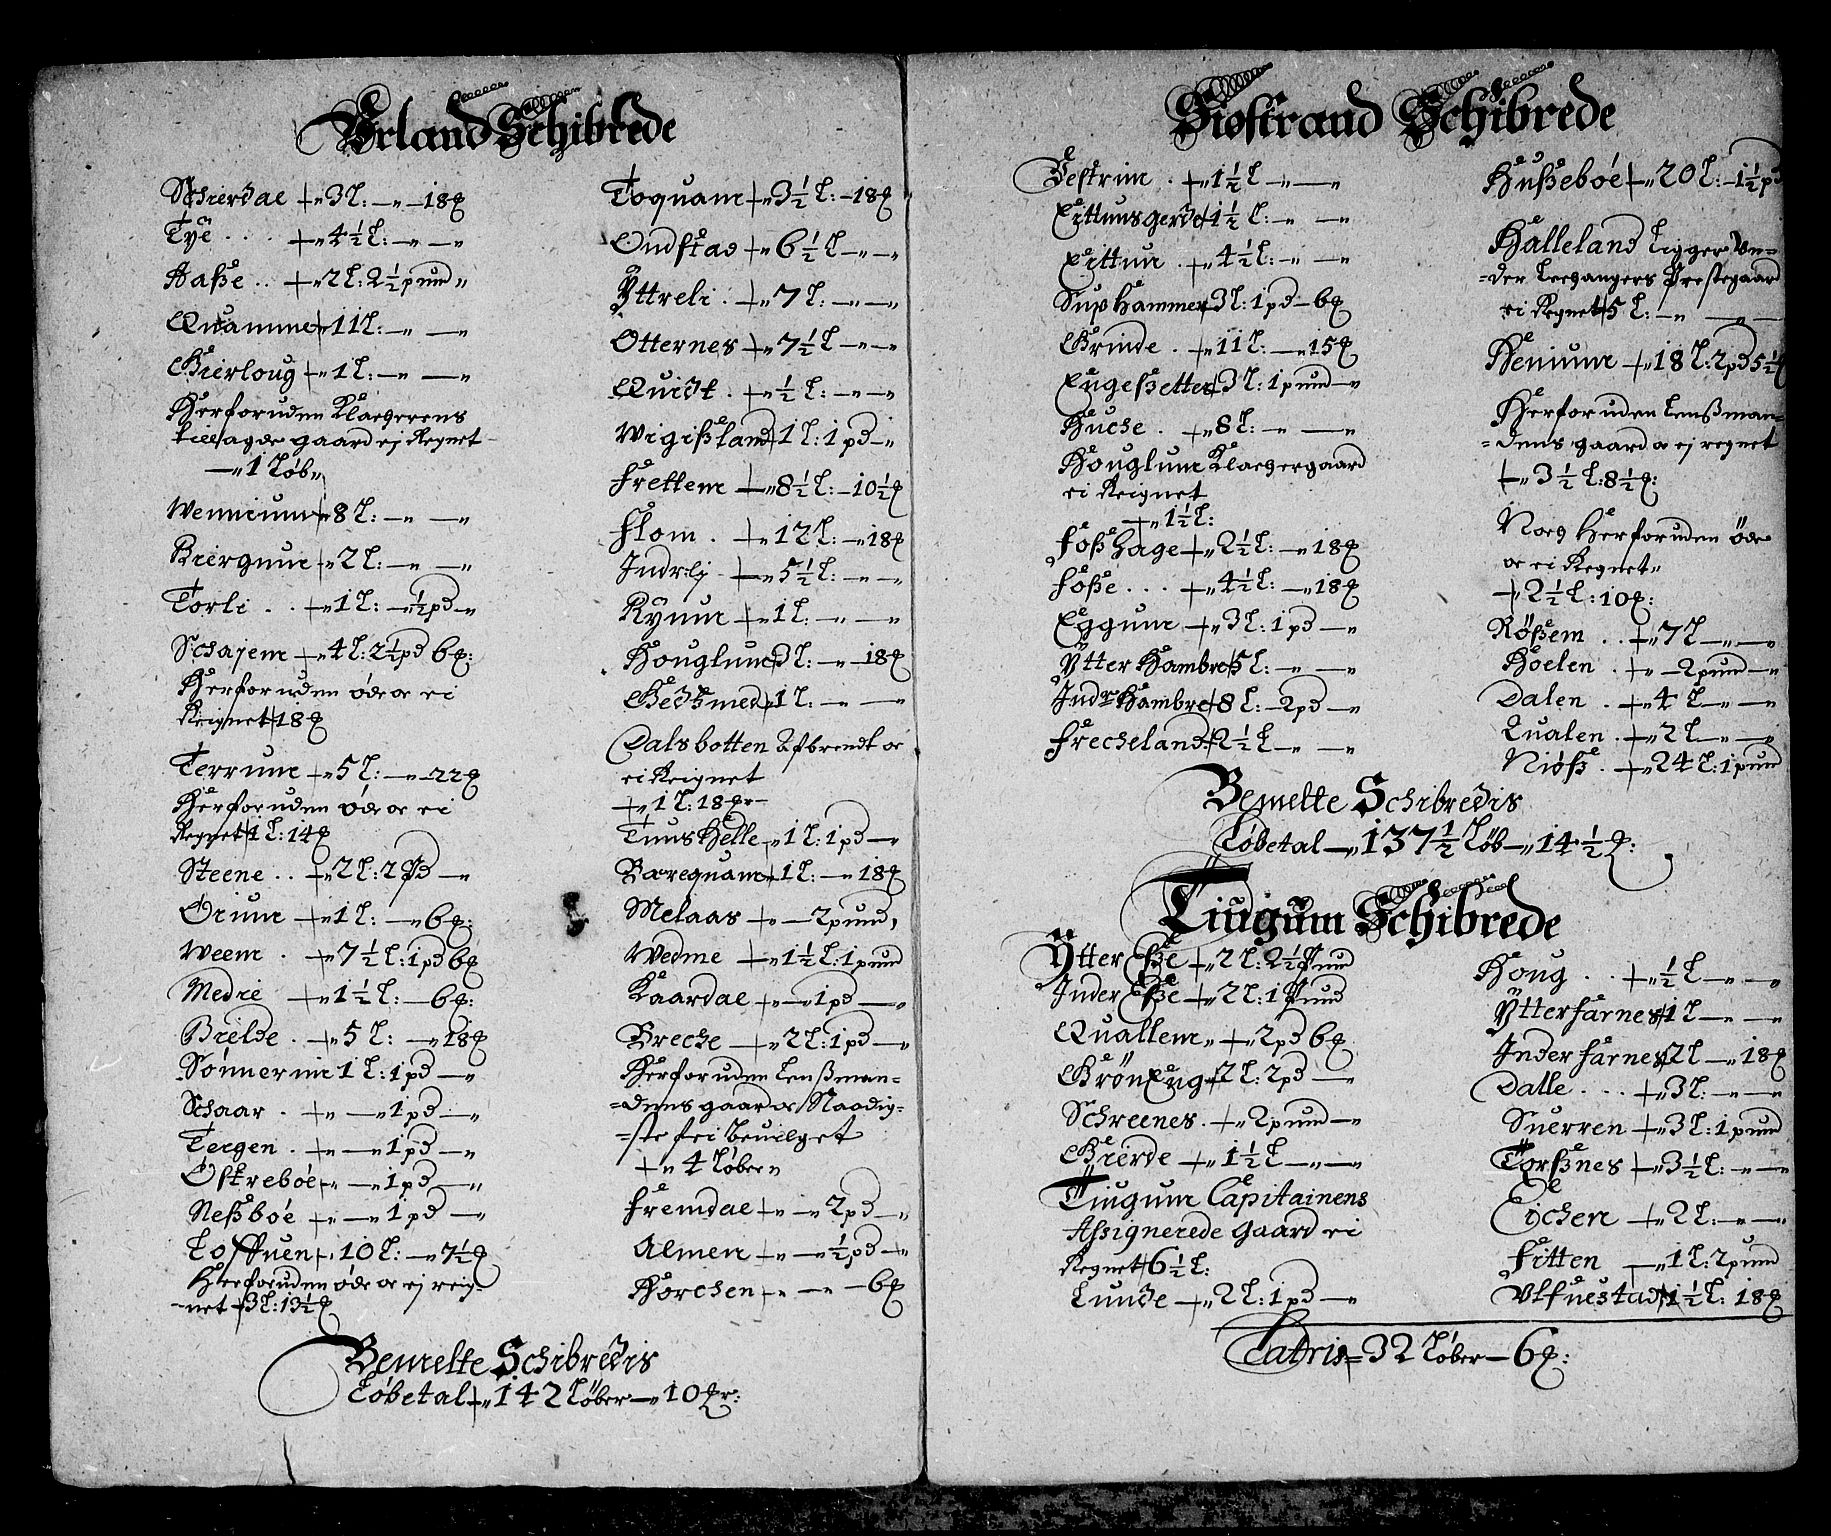 Urland Schibrede
Schierdae +„ 3 L: —„— 18 ȩ
Tÿe . . . —„ 4½ L: —„ —„
Aaße . . +„ 2 L: 2½ pund „
Quamme +„ 11 L: —„ —„
Gierloug +„ 1 L: —„ —„
Herforuden Klaegerens
tillagde gaard ej Regnet
—„ 1 Løb„
Wennium +„ 8 L: —„ —„
Biergum +„ 2 L: —„ —„
Torli . . +„ 1 L: —„ ½ pd —„
Schajem +„ 4 L: 2½ pd 6 ȩ:
Herforuden øde er ei
Reignet + 18 ȩ
Terrum +„ 5 L: —„ — 22 ȩ
Herforuden øde er ei
Regnet + 1 L: 14 ȩ
Steene . . +„ 2 L: 2 pd —„
Orum +„ 1 L: —„ 6 ȩ:
Weem . +„ 7½ L: 1 pd 6 ȩ
Medie +„ 1½ L: — 6 ȩ:
Brelde . +„ 5 L: —„ 18 ȩ
Sønnerim 1 L: 1 pd —„
Schaar . +„ —„ 1 pd —„
Tergen . +„ —„ 1 pd —„
Østreboe +„ —„ 1 pd —„
Neßboe +„ —„ 1 pd —„
Loffuen +„ 10 L: —„ 7½ ȩ
Herforuden øde er ej reig-
-net + 3 L: 13½ ȩ
Toquam +„ 3½ L: — 18 ȩ
Ondstad +„ 6½ L —„ —„
Yttreli . +„ 7 L: —„ —„
Otternes +„ 7½ L —„ —„
Quidt . +„ ½ L: —„ —„
Wigißland + 1 L: 1 pd —„
Frettem —„ 8½ L: — 10½ ȩ
Flom . +„ 12 L: —„ 18 ȩ
Indrlj . —„ 5½ L: —„ —„
Rÿum +„ 1 L: —„ —„
Houglum + 3 L: —„ — 18 ȩ
Gedtmed + 1 L: —„ —„
Dalsbotten Afbrendt er
ei Reignet
+„ 1 L: 18 ȩr —
Tuushelle —„ 1 L: 1 pd —„
Bærequam + 1 L: —„ 18 ȩ
Melaas +„ — 2 pund„
Wedme +„ 1½ L: 1 pund
Kaardae +„ —„ 1 pd —„
Breche —„ 2 L: 1 pd —„
Herforuden Lenßman-
=dens gaard er Naadig-
=ste fri beuilget
+„ 4 Løber„
Fremdae +„ —„ 2 pd —„
Almen +„ —„ ½ pd —„
Horchen +„ —„ — 6 ȩ
Bemelte Schibredis
Løbetal +„ 142 Løber —„ 10 ȩr:
Siøstrand Schibrede
Festrim . +„ 1½ L —„ —„
Eittunsgerde + 1½ L: —„ —„
Eittun . +„ 4½ L: —„ —„
Suphammer 3 L: 1 pd — 6 ȩ
Grinde . +„ 11 L: —„ 15 ȩ
Engeßetter + 3 L: 1 pund —„
Huche . +„ 8 L: —„ —„
Houglum Klaegergaard
ei Reignet
—„ 1½ L:
Foßhage +„ 2½ L: —„ 18 ȩ
Foße . . . +„ 4½ L: —„ 18 ȩ
Eggum +„ 3 L: 1 pd —„
Ytter Hambre + 5 L: —„ —„
Indr Hambre + 8 L: — 2 pd —„
Frecheland + 2½ L —„ —„
Hußeboe +„ 20 L: — 1½ pd
Halleland Ligger Un-
=der Leegangers Prestegaard
ei Regnet + 5 L: —„ —„
Henium +„ 18 L: 2 pd 5½ ȩ
Herforuden Lenßman-
=dens gaard er ej regnet
+„ 3½ L: 8½ ȩ:
Norg Herforuden øde
er ei Regnet„
+„ 2½ L: 10 ȩ:
Røßem . . +„ 7 L —„ —„
Hoelen . +„ — 2 pund —„
Dalen . +„ 4 L —„ —„
Qualen . +„ 2 L —„ —„
Niøß . +„ 24 L: 1 pund
Bemelte Schibredis
Løbetal —„ 137½ Løb —„ 14½ ȩ:
Tiugum Schibrede
Ÿtter Eße +„ 2 L: 2½ Pund
Inder Eße +„ 2 L: 1 Pund
Quallem„ +„ 2 pd 6 ȩ
Grøneng + 2 L: 2 pd —„
Schreenes . +„ 2 pund —„
Gierde +„ 1½ L —„ —„
Tiugum Capitainens
Assignerede Gaard ei
Regnet + 6½ L:
Lunde +„ 2 L: 1 pd —„
Houg . . +„ ½ L —„ —„
Ÿtterfarnes + 1 L —„ —„
Inderfarnes 2 L —„ 18 ȩ
Dalle . . . +„ 3 L: —„ —„
Suerren +„ 3 L: 1 pund
Torßnes +„ 3½ L: —„ —„
Eichen +„ 2 L: —„ —„
Fitten —„ 1 L: 2 pund
Ulfuestad + 1½ L: 18 ȩ
Latris = 32 Løber — 6 ȩ: